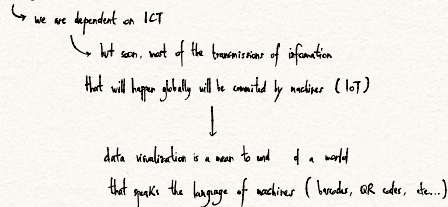 we are dependent on ICT
but soon, most of the transmissions of information
that will happen globally will be commited by machines (IoT)
data visualization is a mean to end of a world
that speaks the language of machines (barcodes, QR codes, etc...)